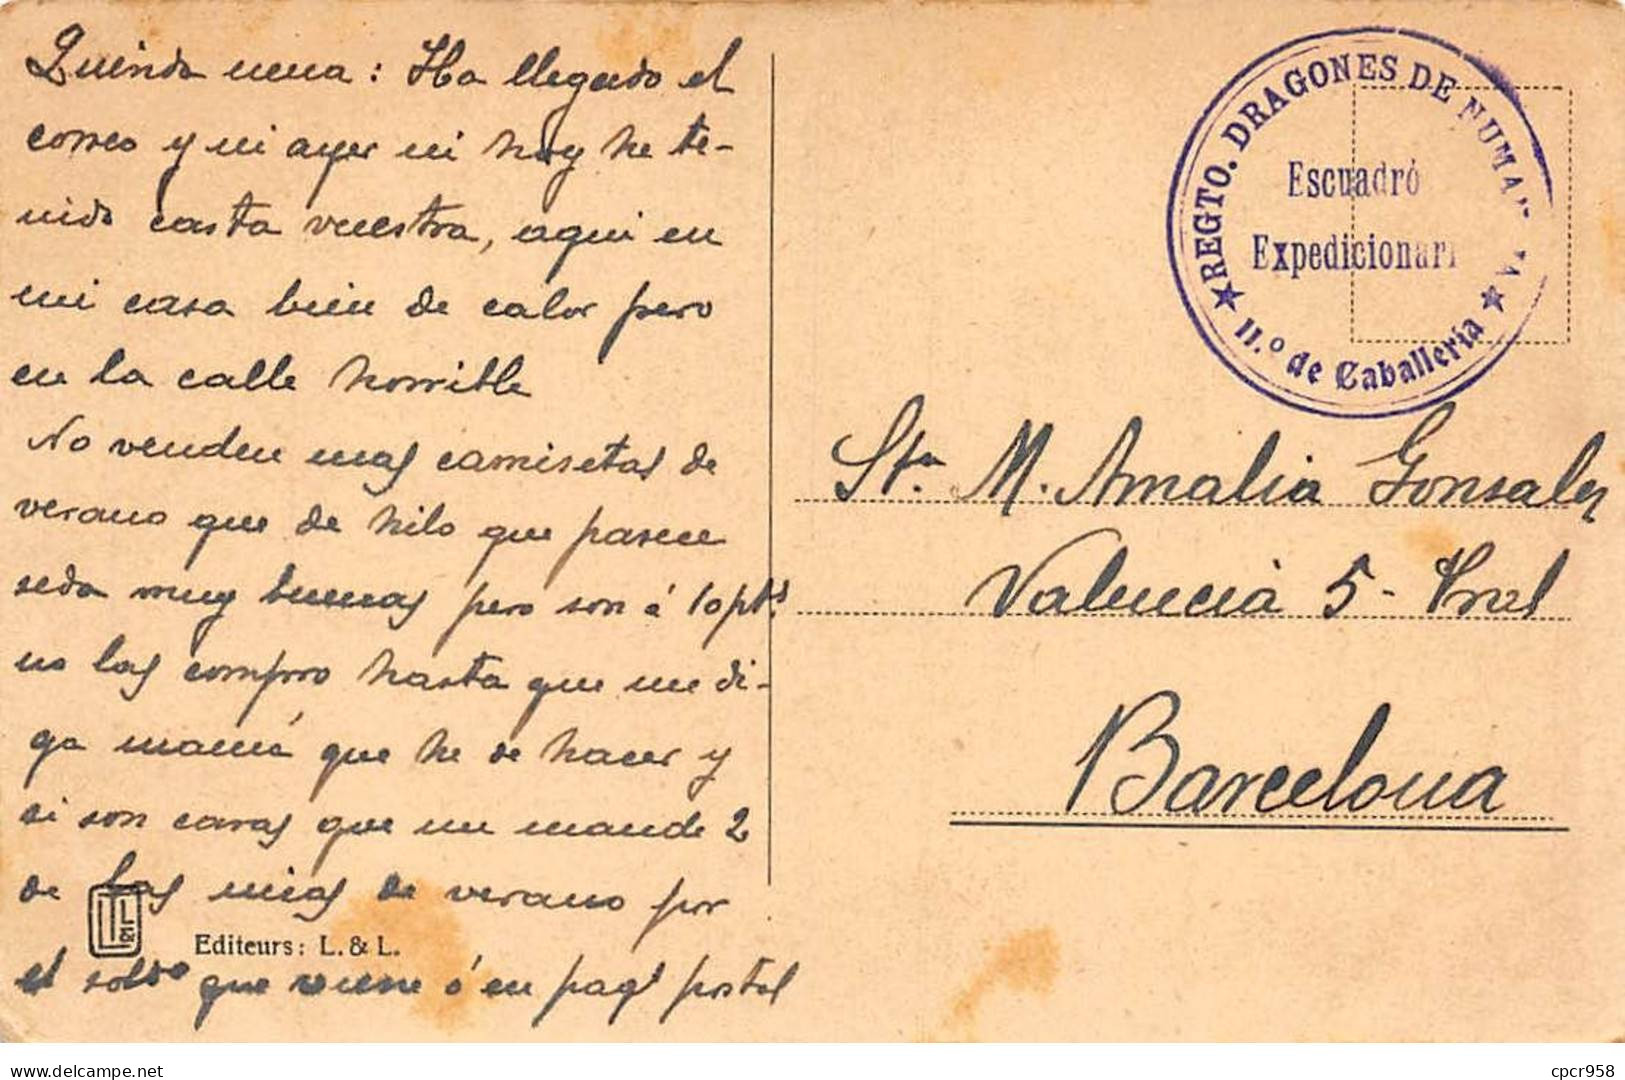 Querida nena: Ha llegado el
correo y ni ayer ni hoy he te-
nido carta vuestra, aqui en
mi casa bien de calor pero
en la calle horrible
No venden mas camisetas de
verano que de hilo que parecen
seda muy buenas pero son á 10 pts.
no las compro hasta que me di-
ga mamá que he de hacer y
si son caras que me mande 2
de las mias de verano por
el soldo que viene ó en paq postal
Editeurs: L. & L.
REGTO. DRAGONES DE NUMAN
Escuadró
Expedicionari
11.º de Caballeria
Sta. M. Amalia Gonsalez
Valencia 5- Pral
Barcelona
delcampe.net
cpcr958